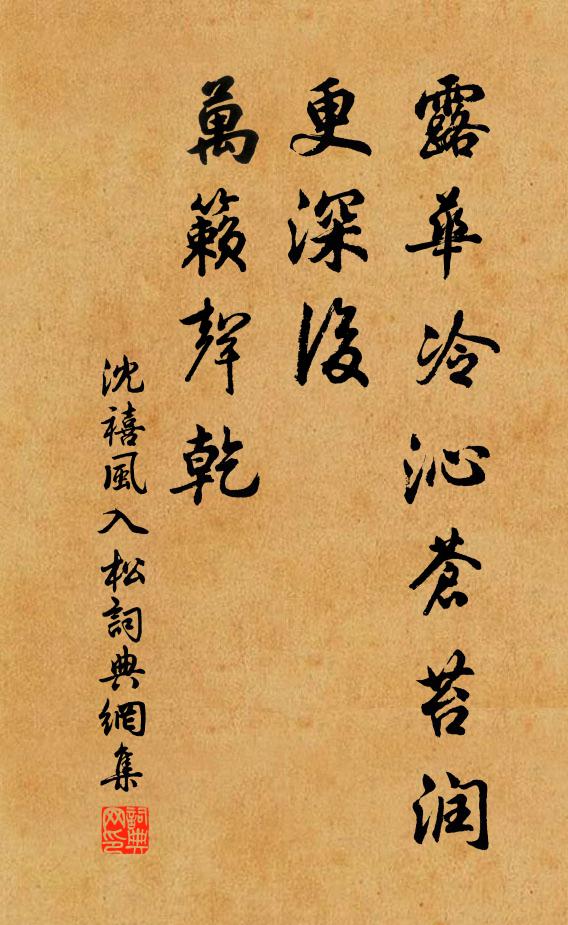 露華冷沁蒼苔润
更深後
萬籟聲乾
沈禧風入松詞典網集
詞典网印